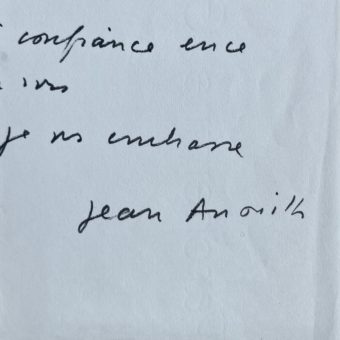 confiance en ce
je vs embrasse
Jean Anouilh